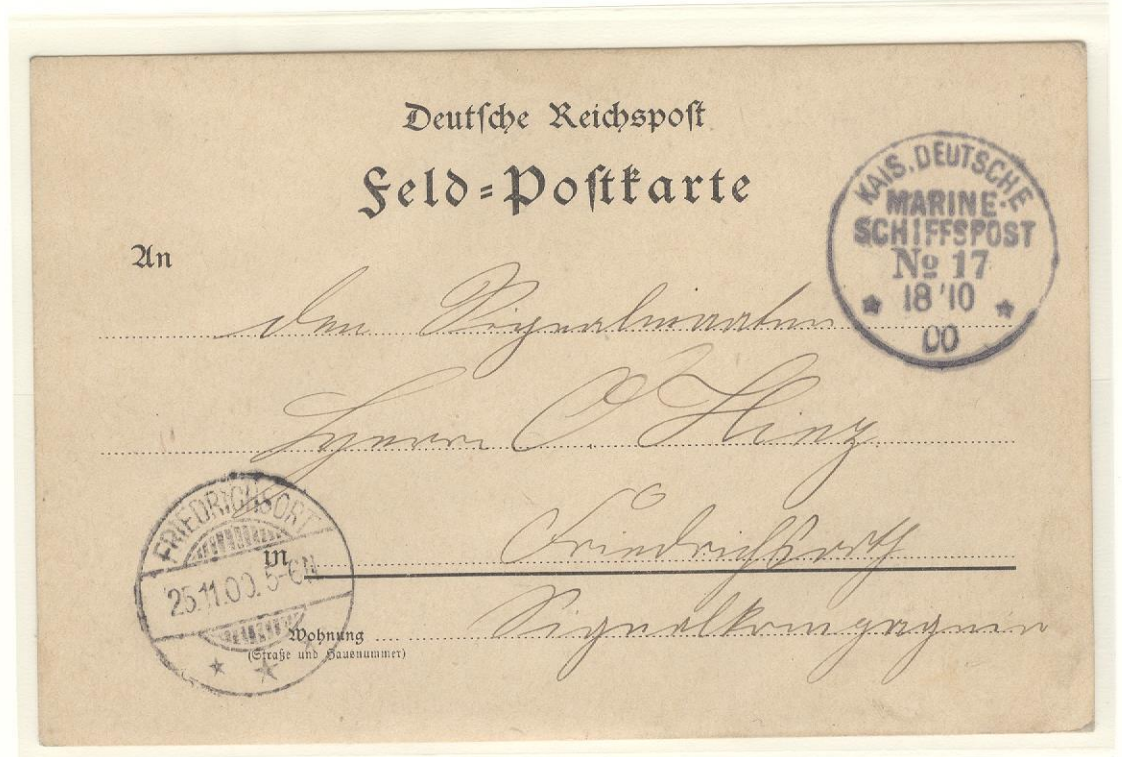 Deutsche Reichspost
Feld=Postkarte
KAIS. DEUTSCHE
MARINE-
SCHIFFSPOST
No 17
18/10
00
An
den Signalmaaten
Herrn O. Hinz
FRIEDRICHSORT
25.11.00. 5-6N
in Friedrichsorth
Wohnung Signalkompagnie
(Straße und Hausnummer)